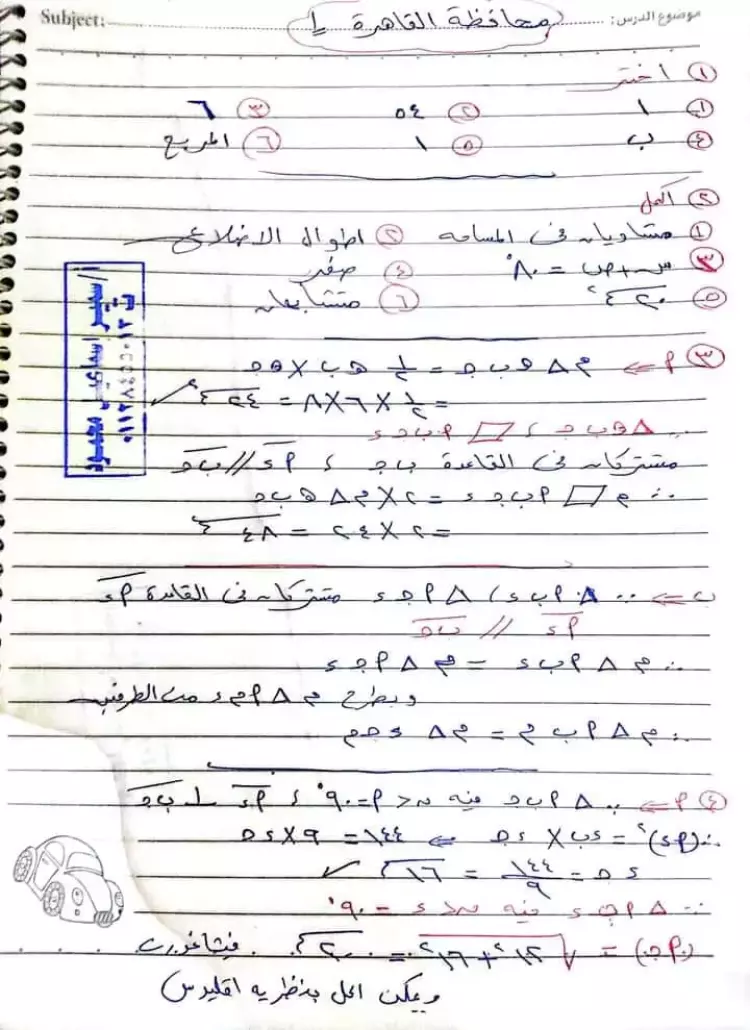 Subject: موضوع الدرس:
محافظة القاهرة
① اختر
① ١ ② ٥٤ ③ ٦
④ ب ⑤ ١ ⑥ المربع
② أكمل
① متساويان فى المساحه ② اطوال الاضلاع
③ س + ص = ٨٠° ④ صفر
⑤ ٢٠ سم² ⑥ متشابهان
③ م ⇐ م △ هـ ب جـ = ١/٢ هـ ب × هـ جـ
= ١/٢ × ٦ × ٨ = ٢٤ سم²
∵ △ هـ ب جـ ، ▱ م ب جـ ء
مشتركان فى القاعدة ب جـ ، م ء // ب جـ
∴ م ▱ م ب جـ ء = ٢ × م △ هـ ب جـ
= ٢ × ٢٤ = ٤٨ سم²
ب ⇐ ∵ △ م ب ء ، △ م جـ ء مشتركان فى القاعدة م ء
م ء // ب جـ
∴ م △ م ب ء = م △ م جـ ء
وبطرح م △ م م ء من الطرفين
∴ م △ م ب م = م △ ء جـ م
④ م ⇐ ∵ △ م ب جـ فيه ق> م = ٩٠° ، م ء ⊥ ب جـ
∴ (م ء)² = ء ب × ء جـ ⇐ ١٤٤ = ٩ × ء جـ
ء جـ = ١٤٤/٩ = ١٦ سم
∵ △ م جـ ء فيه ق> ء = ٩٠°
(م جـ) = √١٢² + ١٦² = ٢٠ سم فيثاغورث
ويمكن الحل بنظريه اقليدس